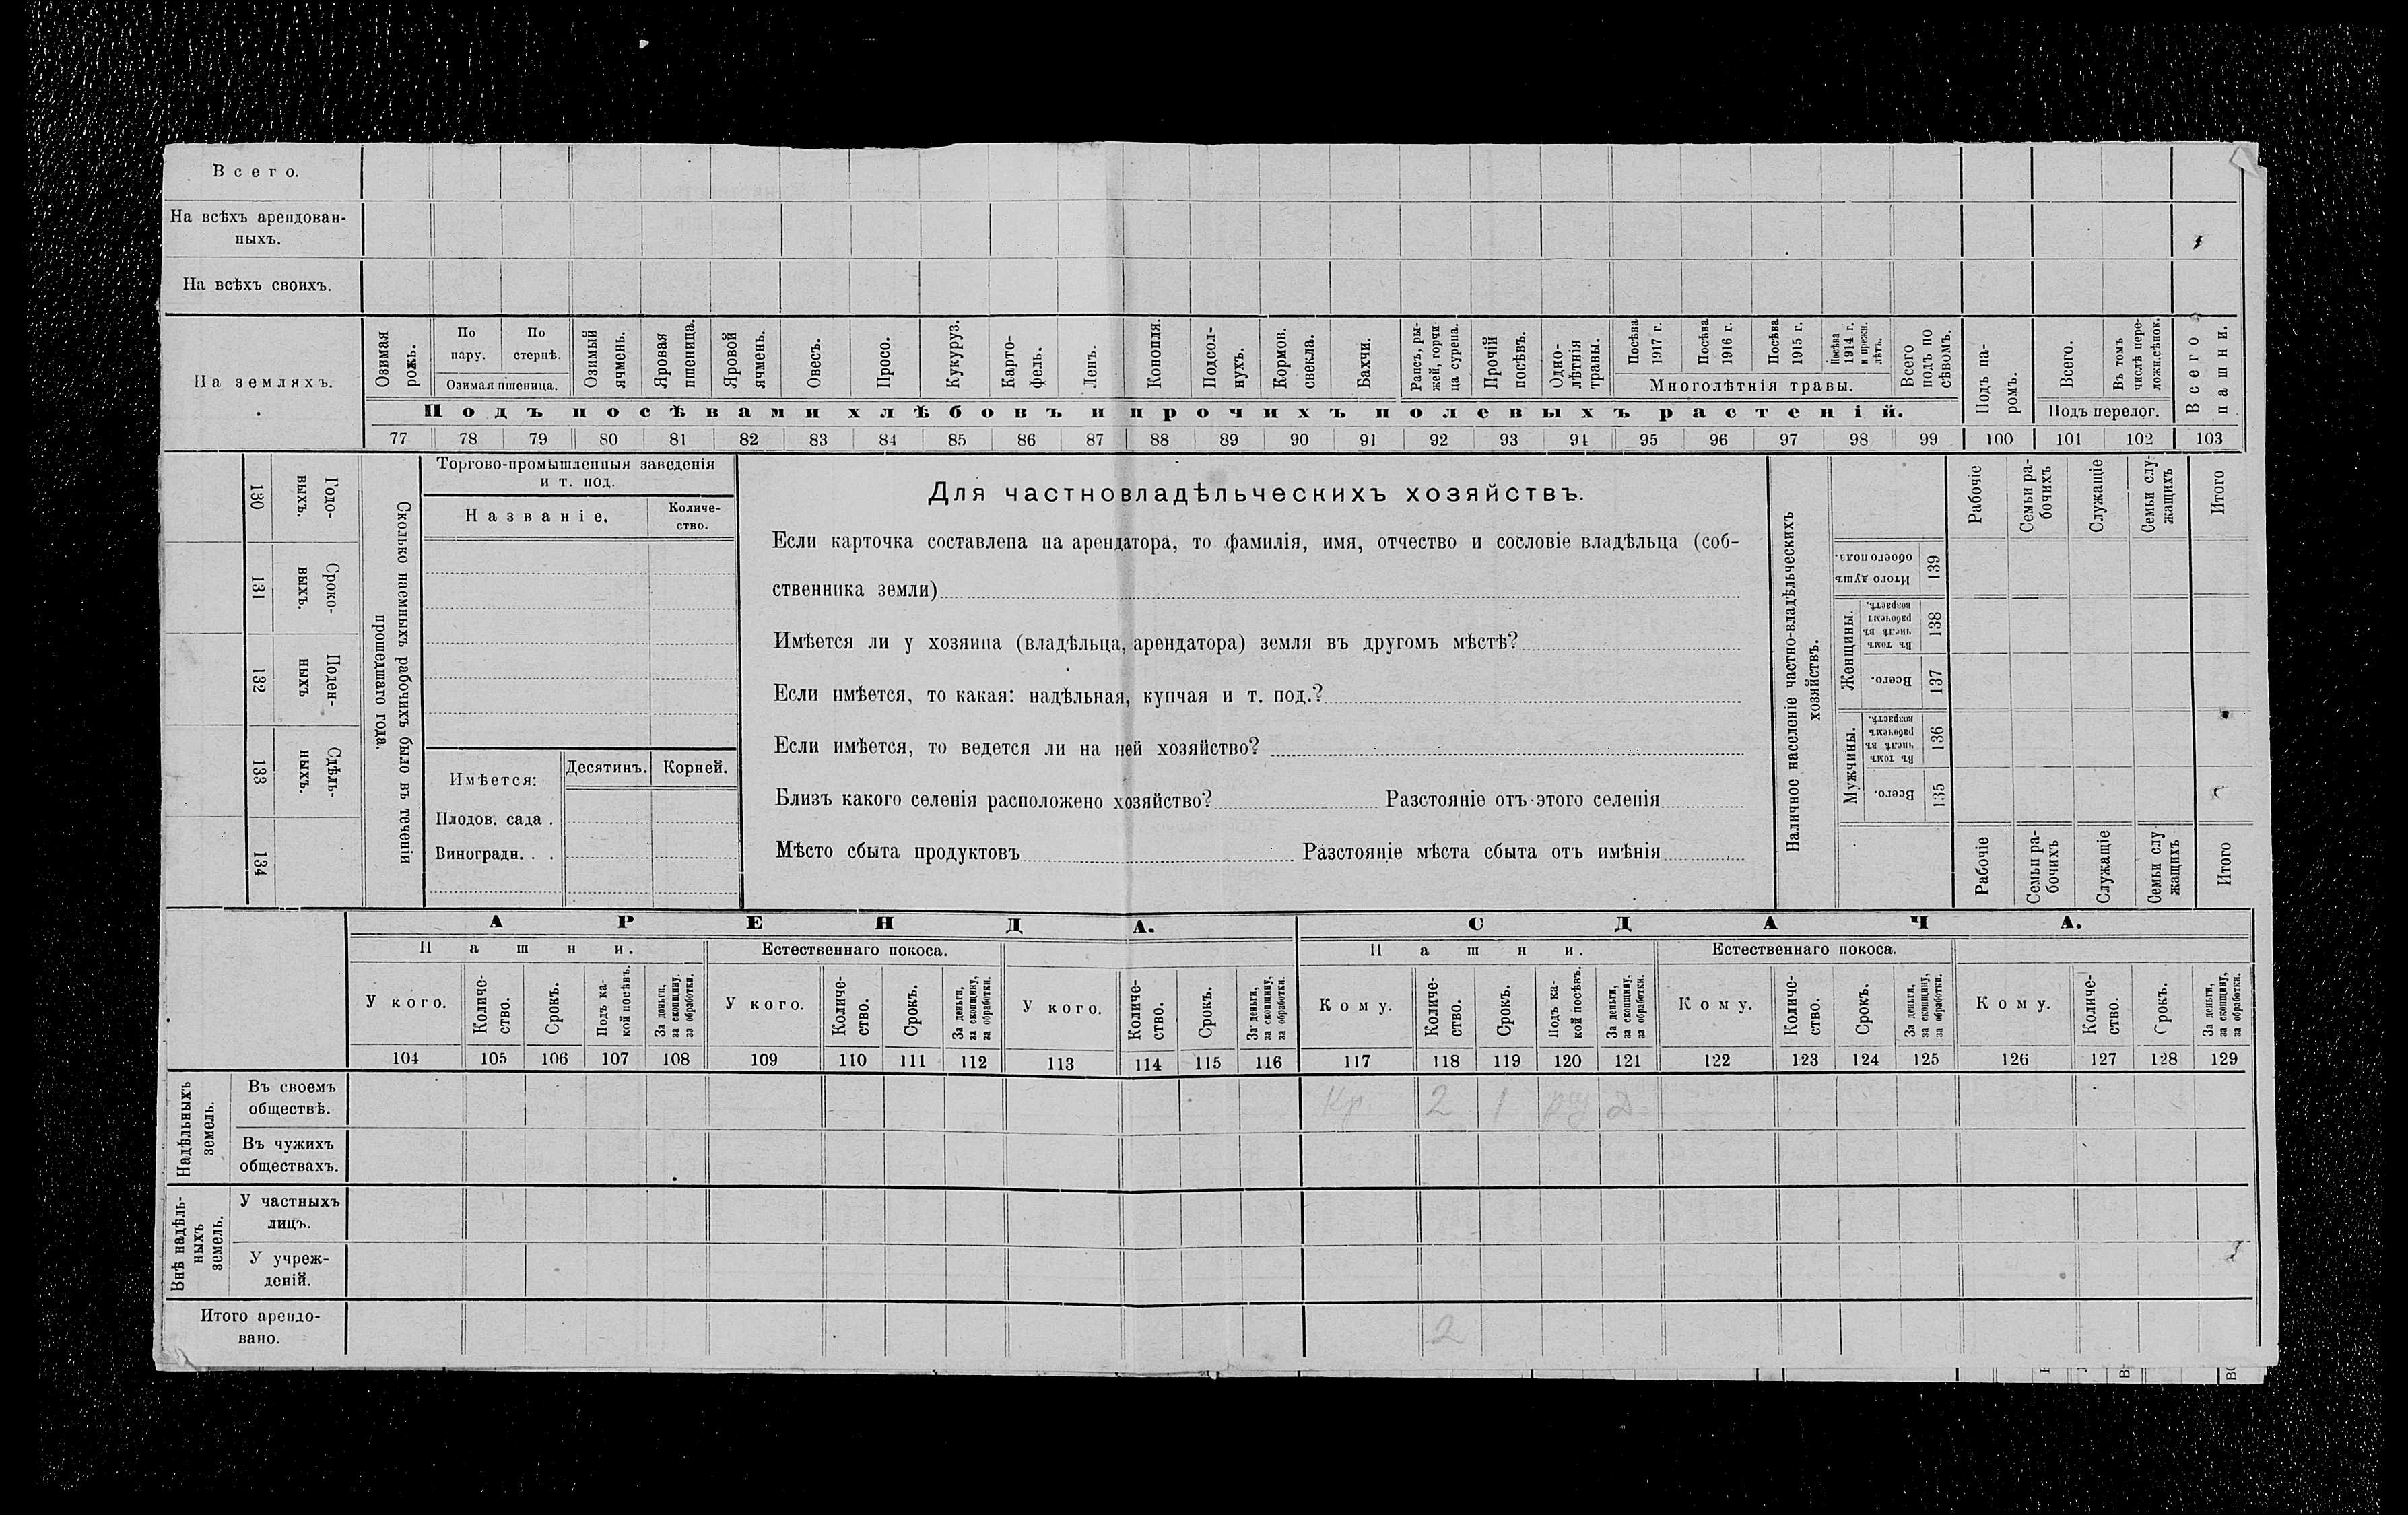 Всего.
На всѣхъ арендован-
ныхъ.
На всѣхъ своихъ.
На земляхъ.
Озимая рожь.
По пару.
По стернѣ.
Озимая пшеница.
Озимый ячмень.
Яровая пшеница.
Яровой ячмень.
Овесъ.
Просо.
Кукуруз.
Карто-
фель.
Ленъ.
Конопля.
Подсол-
нухъ.
Кормов. свекла.
Бахчи.
Рапсъ, ры-
жей, горчи
ца сурепа.
Прочій посѣвъ.
Одно-
лѣтнія
травы.
Посѣва 1917 г.
Посѣва 1916 г.
Посѣва 1915 г.
Посѣва 1914 г. и прежн. лѣтъ.
Многолѣтнія травы.
Всего подъ по сѣвомъ.
Подъ посѣвами хлѣбовъ и прочихъ полевыхъ растеній.
Подъ па-
ромъ.
Всего.
Въ томъ числѣ пере-
ложн.сѣнок.
Подъ перелог.
Всего пашни.
77 78 79 80 81 82 83 84 85 86 87 88 89 90 91 92 93 94 95 96 97 98 99 100 101 102 103
130 Годо-
выхъ.
131 Сроко-
выхъ.
132 Поден-
ныхъ
133 Сдѣль-
ныхъ.
134
Сколько наемныхъ рабочихъ было въ теченіи
прошедшаго года.
Торгово-промышленныя заведенія
и т. под.
Названіе.
Количе-
ство.
Имѣется:
Десятинъ.
Корней.
Плодов. сада .
Виноградн. . .
Для частновладѣльческихъ хозяйствъ.
Если карточка составлена на арендатора, то фамилія, имя, отчество и сословіе владѣльца (соб-
ственника земли)
Имѣется ли у хозяина (владѣльца, арендатора) земля въ другомъ мѣстѣ?
Если имѣется, то какая: надѣльная, купчая и т. под.?
Если имѣется, то ведется ли на ней хозяйство?
Близъ какого селенія расположено хозяйство? Разстояніе отъ этого селенія
Мѣсто сбыта продуктовъ Разстояніе мѣста сбыта отъ имѣнія
Наличное населеніе частно-владѣльческихъ
хозяйствъ.
Рабочіе
Семьи ра-
бочихъ
Служащіе
Семьи слу-
жащихъ
Итого
Итого душъ обоего пола. 139
Женщины.
Въ томъ числѣ въ рабочемъ возрастѣ. 138
Всего. 137
Мужчины.
Въ томъ числѣ въ рабочемъ возрастѣ. 136
Всего. 135
Рабочіе
Семьи ра-
бочихъ
Служащіе
Семьи слу
жащихъ
Итого
АРЕНДА.
СДАЧА.
Пашни.
Естественнаго покоса.
Пашни.
Естественнаго покоса.
У кого.
Количе-
ство.
Срокъ.
Подъ ка-
кой посѣвъ.
За деньги, за скопщину, за обработки.
У кого.
Количе-
ство.
Срокъ.
За деньги, за скопщину, за обработки.
У кого.
Количе-
ство.
Срокъ.
За деньги, за скопщину, за обработки.
Кому.
Количе-
ство.
Срокъ.
Подъ ка-
кой посѣвъ.
За деньги, за скопщину, за обработки.
Кому.
Количе-
ство.
Срокъ.
За деньги, за скопщину, за обработки.
Кому.
Количе-
ство.
Срокъ.
За деньги, за скопщину, за обработки.
104 105 106 107 108 109 110 111 112 113 114 115 116 117 118 119 120 121 122 123 124 125 126 127 128 129
Надѣльныхъ
земель.
Въ своемъ
обществѣ.
Кр 2 1
Въ чужихъ
обществахъ.
Внѣ надѣль-
ныхъ
земель.
У частныхъ
лицъ.
У учреж-
деній.
Итого арендо-
вано.
2